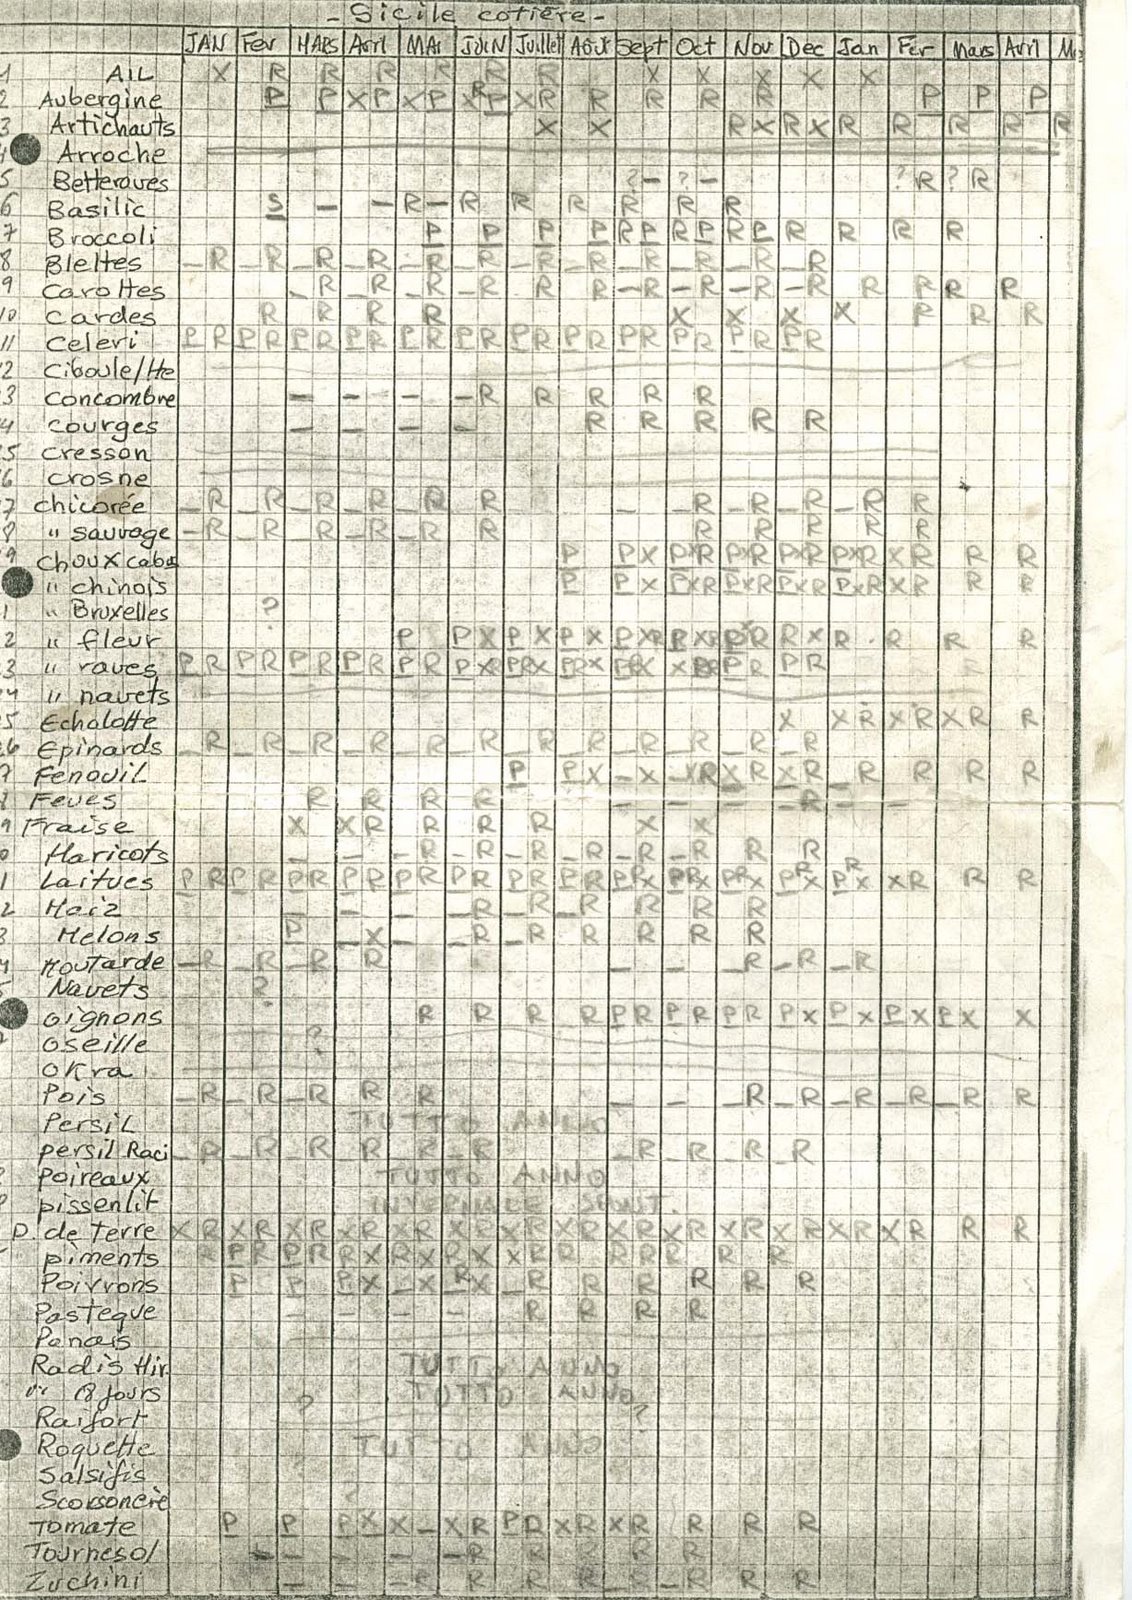 - Sicile cotière -
JAN Fev MARS Avril MAi JUiN Juillet Août Sept Oct Nov Dec Jan Fev Mars Avril
AiL X R R R R R R X X X X X
2 Aubergine P P X P X P X R P X R R R R R P P P
3 Artichauts X X R X R X R R R R R
Arroche
5 Betteraves ? - ? - ? R ? R
6 Basilic S - - R - R R R R R R
7 Broccoli P P P P R P R P R P R R R R
8 Blettes _ R _ R _ R _ R _ R _ R _ R _ R _ R _ R _ R _ R
9 Carottes _ R _ R _ R _ R R R - R - R - R - R R R R R
10 Cardes R R R R X X X X R R R
11 Celeri P R P R P R P R P R P R P R P R P R P R P R P R
2 Ciboule/tte
3 Concombre - - - - R R R R R
4 Courges - - - - R R R R R
5 Cresson
6 Crosne
7 Chicorée _ R _ R _ R _ R _ R R _ _ R _ R _ R _ R R
8 " sauvage - R _ R _ R _ R _ R R R R R R R
9 Choux cabus P P X P X R P X R P X R P X R X R R R
" chinois P P X P X R P X R P X R P X R X R R R
1 " Bruxelles ?
2 " fleur P P X P X P X P X R P X R P R R X R R R R
3 " raves P R P R P R P R P R P X R P R X P R X P R X X P R P R P R
" navets
5 Echalotte X X R X R X R R
6 Epinards _ R _ R _ R _ R _ R _ R _ R _ R _ R _ R _ R _ R
7 Fenouil P P X - X - X R X R X R _ R R R R
Feves R R R R _ _ _ - R - -
9 Fraise X X R R R R X X
Haricots _ _ - R _ R _ R _ R _ R _ R R R
1 Laitues P R P R P R P R P R P R P R P R P R X P R X P R X P R X P R X X R R R
2 Maiz _ - - _ R _ R _ R R R R
3 Melons P _ X _ _ R _ R R R R R
Moutarde _ R _ R _ R R _ _ _ R _ R _ R
Navets ?
Oignons R R R R P R P R P R P X P X P X P X X
Oseille ?
Okra
Pois _ R _ R _ R R R _ _ _ R _ R _ R _ R _ R R
Persil TUTTO ANNO
persil Raci _ R _ R R R R R _ R _ R _ R _ R
Poireaux TUTTO ANNO
pissenlit INVERNALE SPONT.
P. de Terre X R X R X R X R X R X R X R X R X R X R X R X R X R X R R R
piments R P R P R R R X R X R X X R R R R R R R R
Poivrons P P P X - X - R X _ R R R R R R
Pasteque - - - - R R R R
Panais
Radis Hiv. TUTTO ANNO
" 18 jours TUTTO ANNO
Raifort ? ?
Roquette TUTTO ANNO
Salsifis
Scorsonère
Tomate P P P X X X - X R P R X R X R R R R
Tournesol - - - - - R R R R R
Zuchini - - - R R R R _ R _ R R R